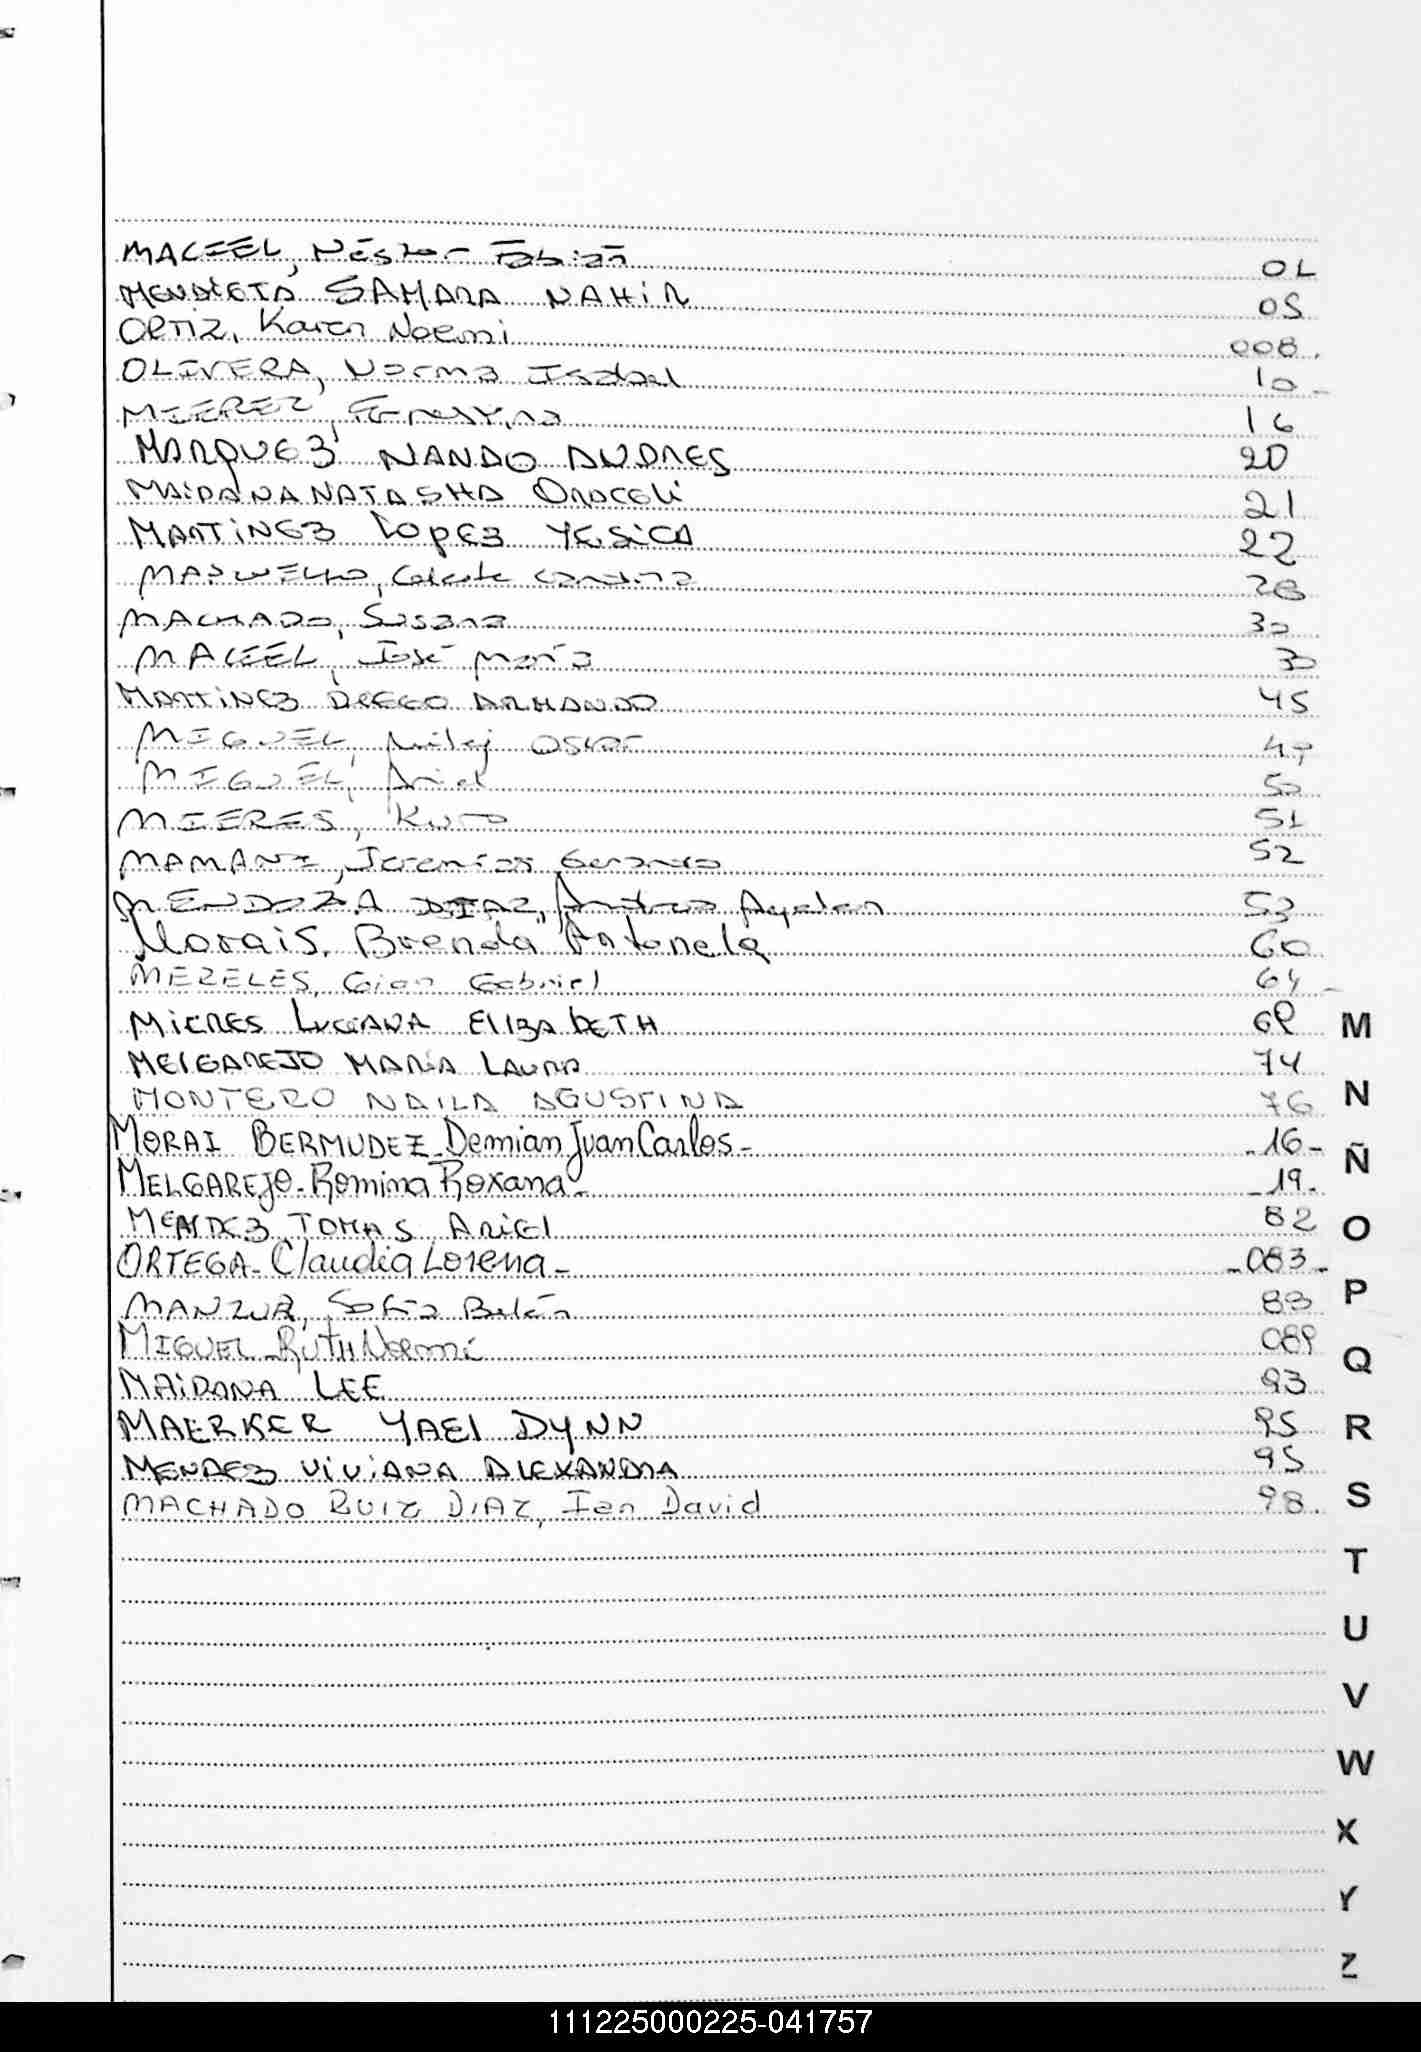 MACIEL, Néstor Fabián 01
MENDIETA SAMARA NAHIR 05
ORTIZ, Karen Noemi 008.
OLIVERA, Norma Isabel 10-
MIEREZ, 16
MARQUEZ NANDO ANDRES 20
MAIDANA NATASHA Oraceli 21
MARTINEZ Lopez YESICA 22
Celeste 28
MACHADO, Susana 30
MACIEL, José María 30
MARTINEZ DIEGO ARMANDO 45
MIGUEL, Oscar 47
MIGUEL, Ariel 50
MIERES, 51
MAMANI, Jeremías 52
MENDOZA DIAZ, Ayelen 53
Morais, Brenda Antonela 60
MEZELES, Gian Gabriel 64-
MIERES LUCIANA ELIZABETH 69
MELGAREJO MARIA LAURA 74
MONTERO NAILA AGUSTINA 76
MORAI BERMUDEZ-Demian Juan Carlos- -16-
MELGAREJO-Romina Roxana- -19-
MENDEZ TOMAS ARIEL 82
ORTEGA-Claudia Lorena- -083-
MANZUR, Sofía Belén 83
MIGUEL-RUTH Noemí 089
MAIDANA LEE 93
MAERKER YAEL DYNN 95
MENDEZ VIVIANA ALEXANDRA 95
MACHADO RUIZ DIAZ, Ian David 98
M
N
Ñ
O
P
Q
R
S
T
U
V
W
X
Y
Z
111225000225-041757